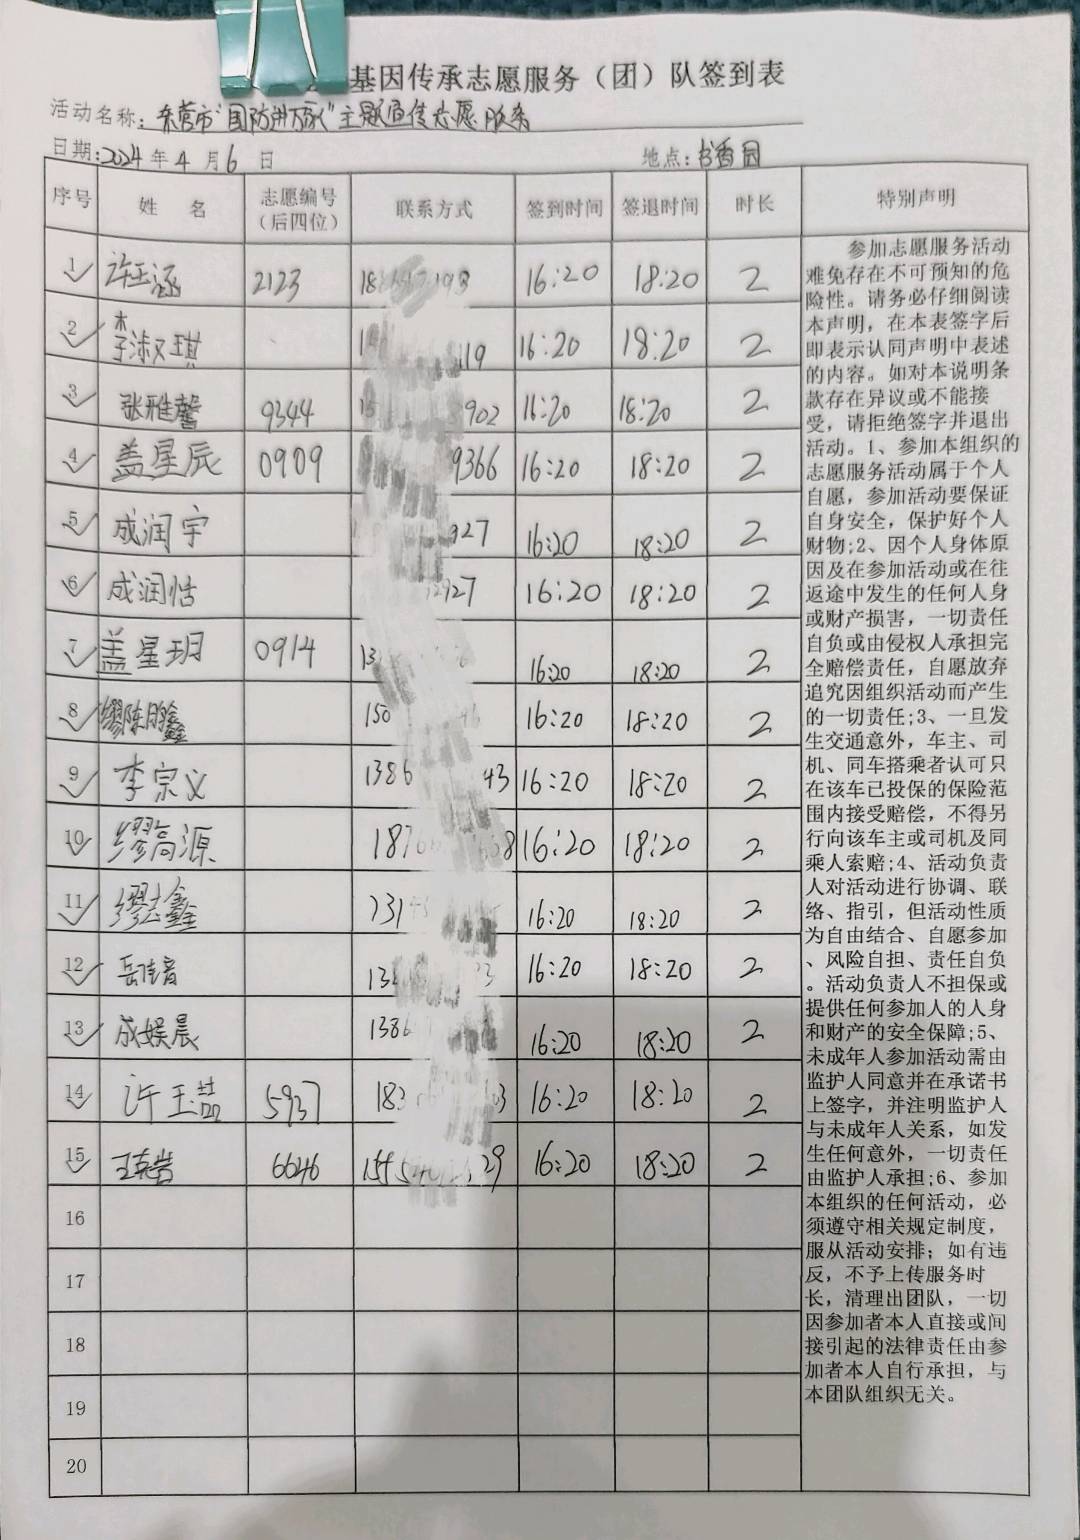 基因传承志愿服务（团）队签到表
活动名称：东营市"国防进万家"主题宣传志愿服务
日期:2024年4月6日 地点:书香园
序号 姓名 志愿编号（后四位） 联系方式 签到时间 签退时间 时长 特别声明
1 许玉涵 2123 16:20 18:20 2
2 李淑琪 16:20 18:20 2
3 张雅馨 9344 16:20 18:20 2
4 盖星辰 0909 9366 16:20 18:20 2
5 成润宇 927 16:20 18:20 2
6 成润恬 2927 16:20 18:20 2
7 盖星玥 0914 16:20 18:20 2
8 缪陈鹏鑫 150 16:20 18:20 2
9 李宗义 1386 43 16:20 18:20 2
10 缪高源 1876 16:20 18:20 2
11 缪 鑫 16:20 18:20 2
12 岳 16:20 18:20 2
13 成娱晨 1386 16:20 18:20 2
14 许玉喆 5937 16:20 18:20 2
15 6646 29 16:20 18:20 2
16
17
18
19
20
参加志愿服务活动
难免存在不可预知的危
险性。请务必仔细阅读
本声明，在本表签字后
即表示认同声明中表述
的内容。如对本说明条
款存在异议或不能接
受，请拒绝签字并退出
活动。1、参加本组织的
志愿服务活动属于个人
自愿，参加活动要保证
自身安全，保护好个人
财物;2、因个人身体原
因及在参加活动或在往
返途中发生的任何人身
或财产损害，一切责任
自负或由侵权人承担完
全赔偿责任，自愿放弃
追究因组织活动而产生
的一切责任;3、一旦发
生交通意外，车主、司
机、同车搭乘者认可只
在该车已投保的保险范
围内接受赔偿，不得另
行向该车主或司机及同
乘人索赔;4、活动负责
人对活动进行协调、联
络、指引，但活动性质
为自由结合、自愿参加
、风险自担、责任自负
。活动负责人不担保或
提供任何参加人的人身
和财产的安全保障;5、
未成年人参加活动需由
监护人同意并在承诺书
上签字，并注明监护人
与未成年人关系，如发
生任何意外，一切责任
由监护人承担;6、参加
本组织的任何活动，必
须遵守相关规定制度，
服从活动安排；如有违
反，不予上传服务时
长，清理出团队，一切
因参加者本人直接或间
接引起的法律责任由参
加者本人自行承担，与
本团队组织无关。